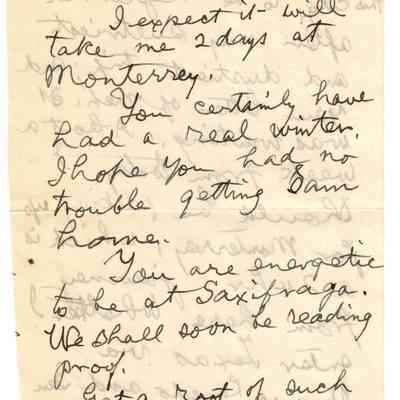 I expect it will
take me 2 days at
Monterrey.
You certainly have
had a real winter.
I hope you had no
trouble getting Sam
home.
You are energetic
to be at Saxifraga.
We shall soon be reading
proof.
Got a root of such